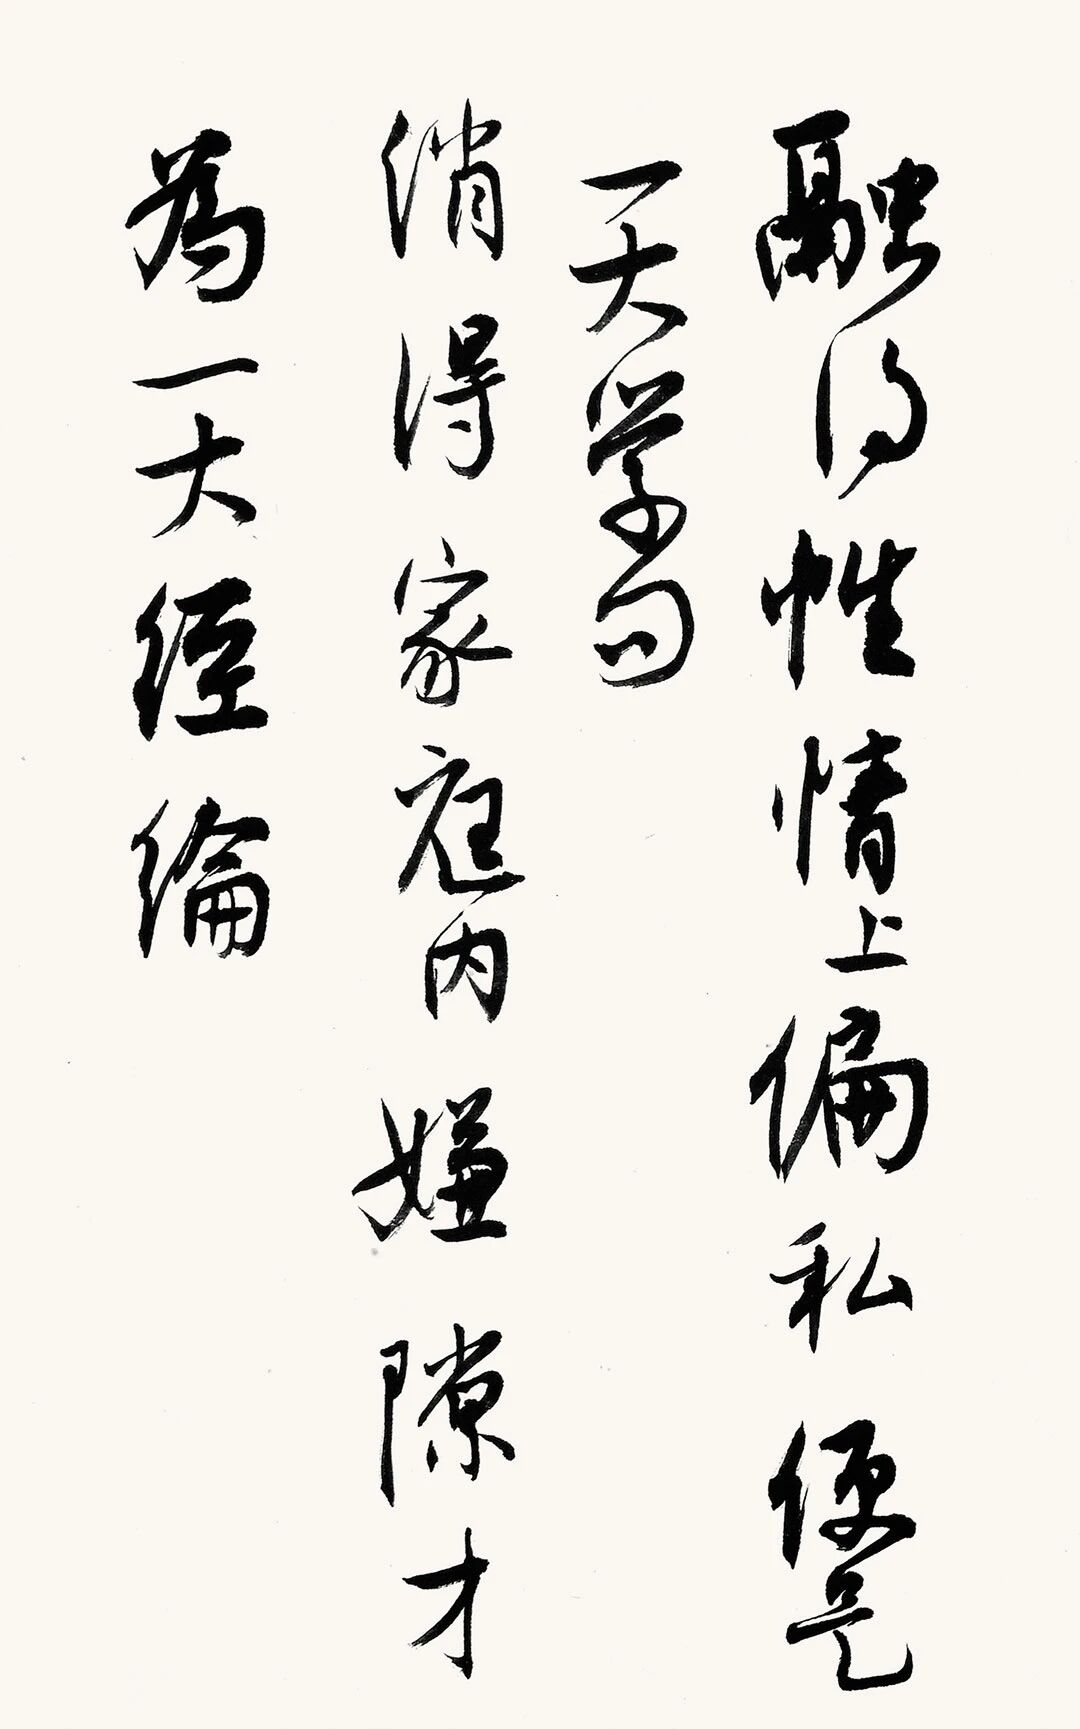 融得性情上偏私便是
一大学问
消得家庭内嫌隙才
為一大經綸